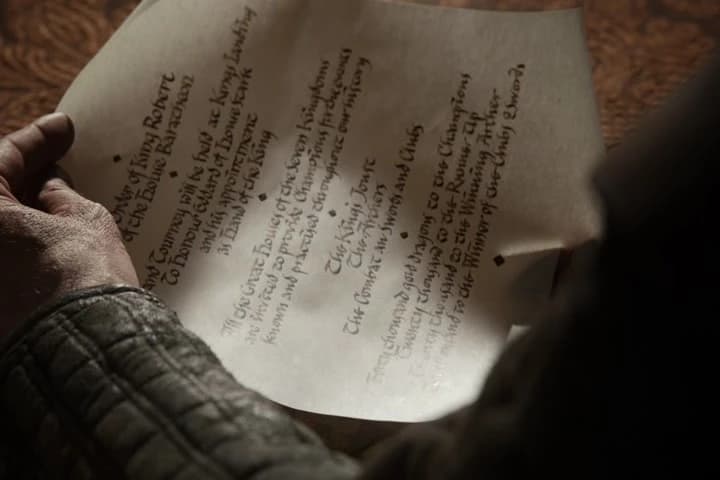 Order of King Robert
of the House Baratheon
and Tourney will be held at Kings Landing
To honour Eddard of House Stark
and his appointment
as Hand of the King
All the Great Houses of the Seven Kingdoms
are invited to provide Champions for the
known and practised throughout our history
The King's Joust
The Archers
The Combat Swords and Clubs
Forty thousand gold dragons to the Champions
Twenty thousand to the Runner Up
Twenty thousand to the Winning Archer
to the Winner of the Clubs Swords